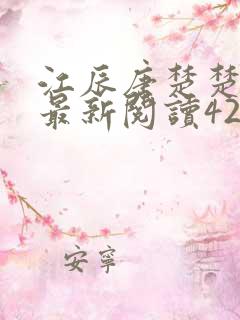 江辰唐楚楚
最新閱讀42
安寧